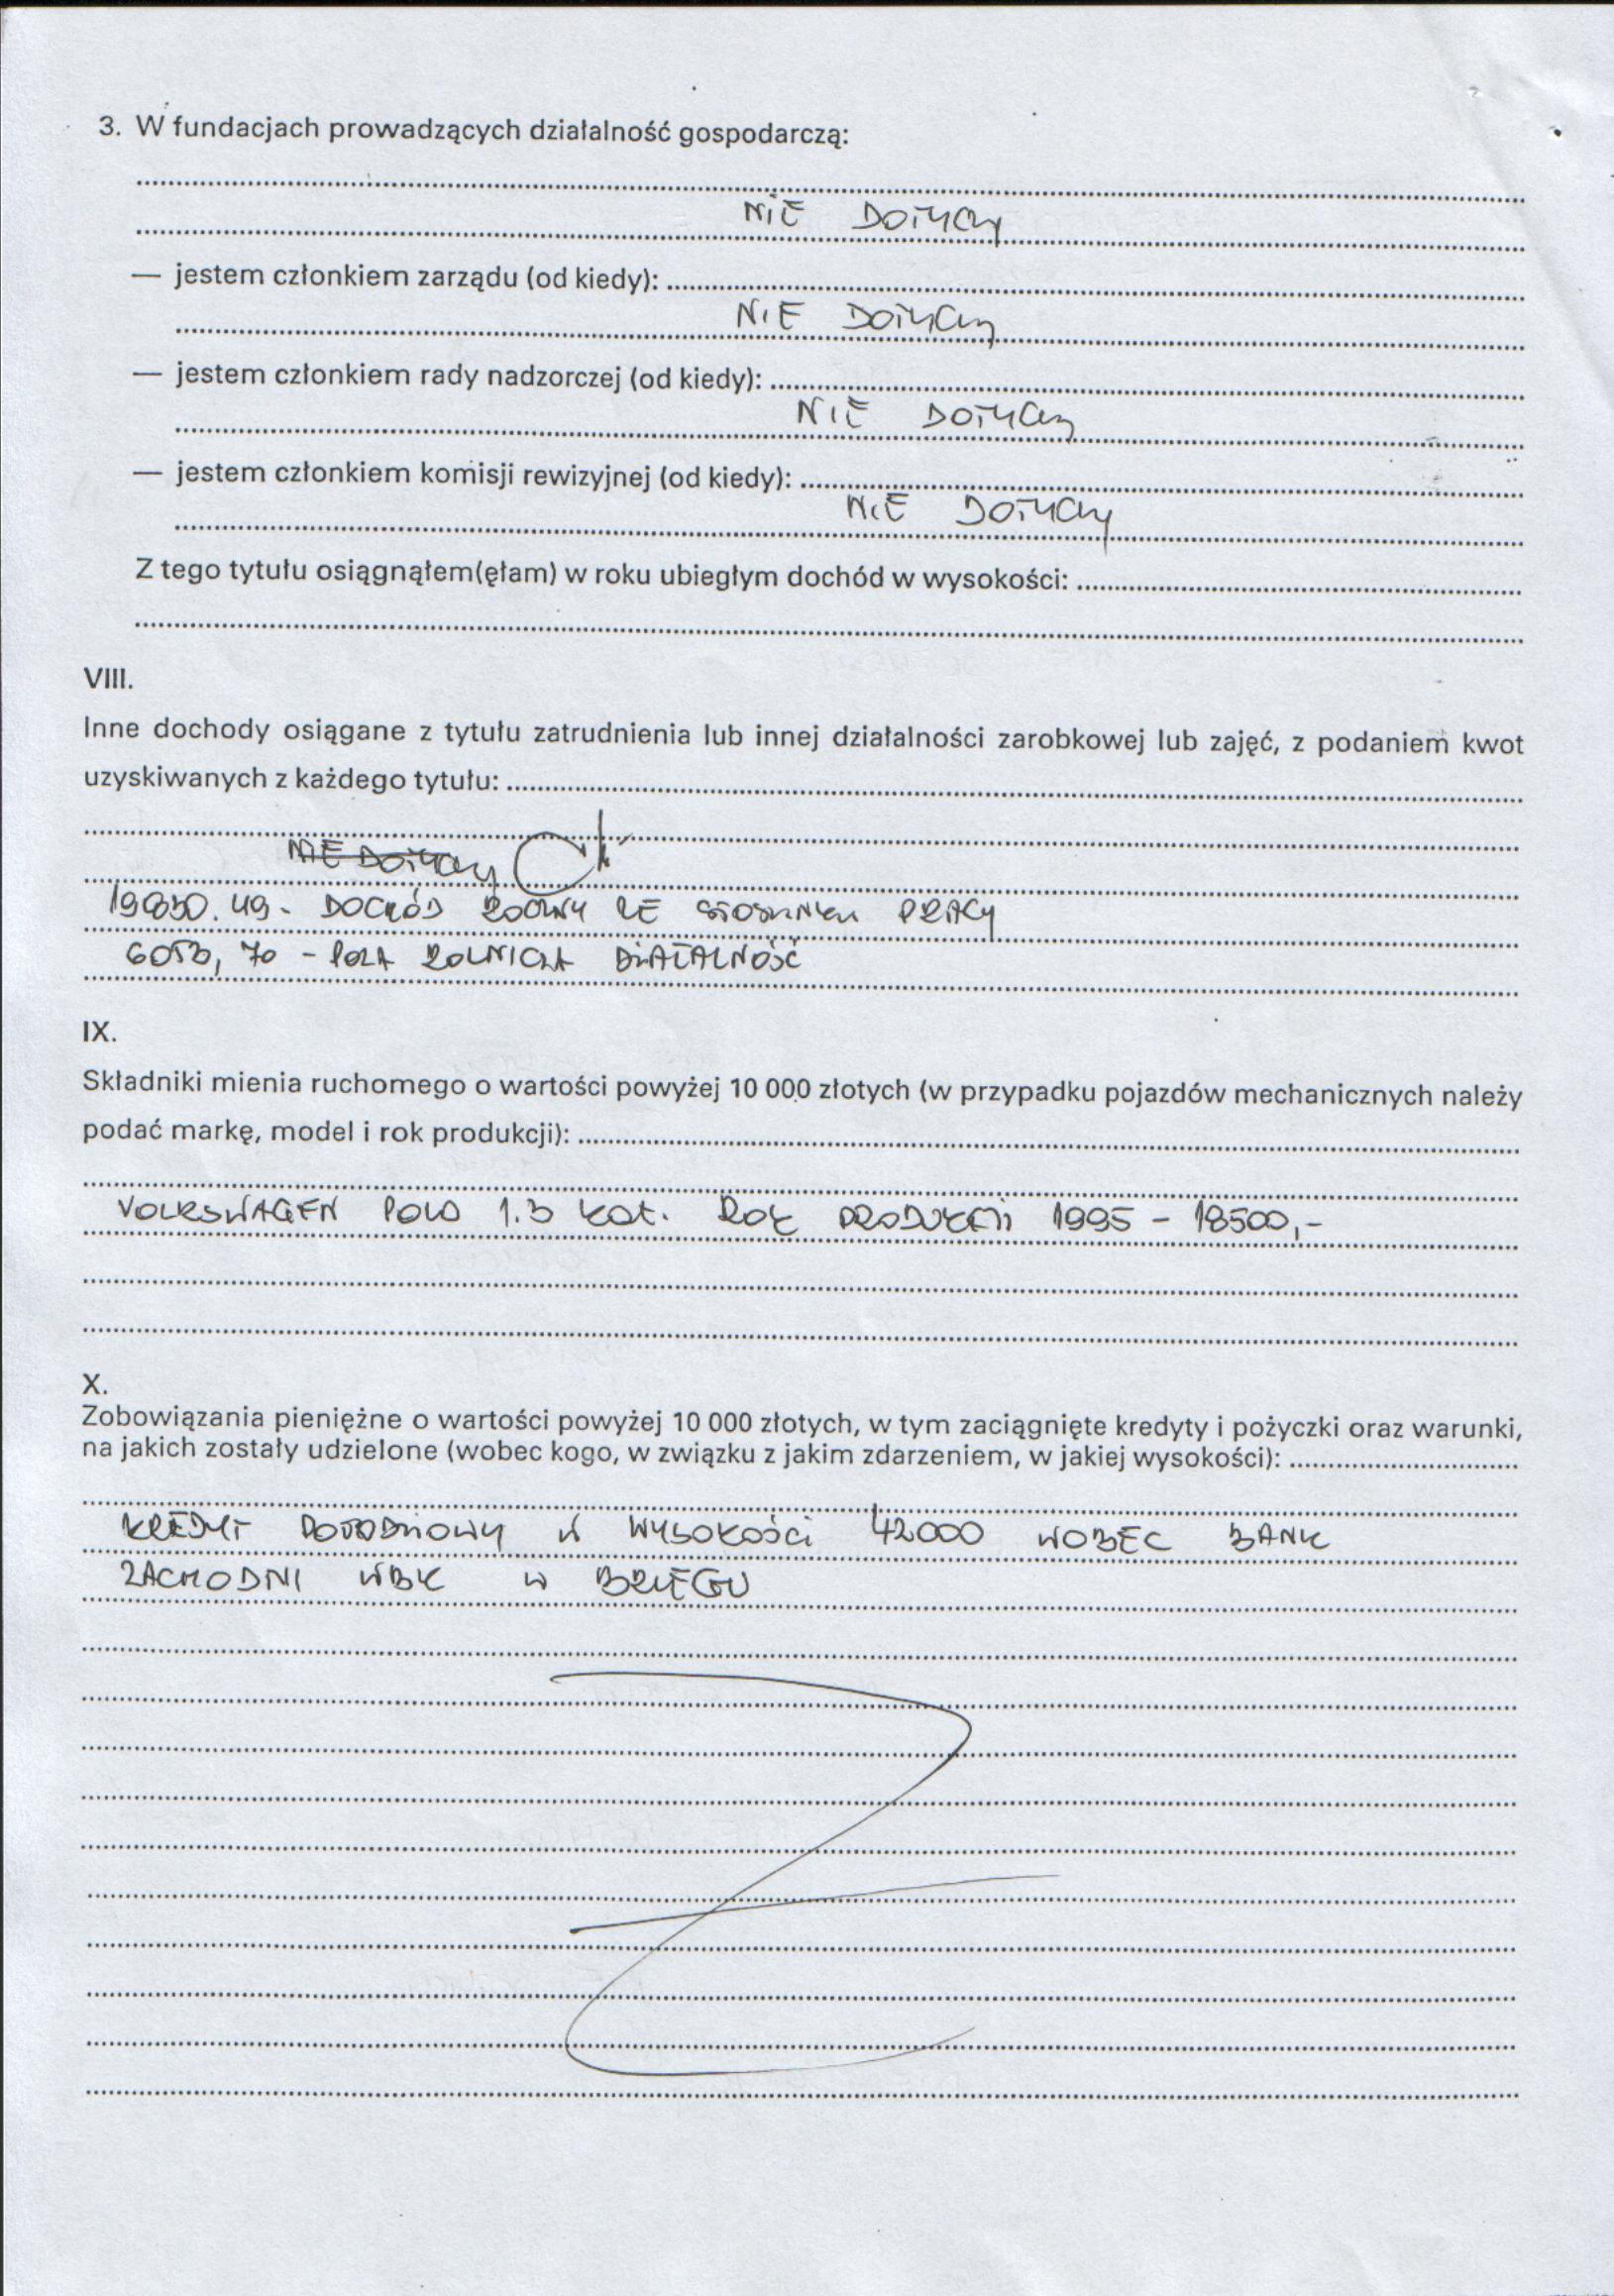 3. W fundacjach prowadzących działalność gospodarczą:
NIE DOTYCZY
— jestem członkiem zarządu (od kiedy):
NIE DOTYCZY
— jestem członkiem rady nadzorczej (od kiedy):
NIE DOTYCZY
— jestem członkiem komisji rewizyjnej (od kiedy):
NIE DOTYCZY
Z tego tytułu osiągnąłem(ęłam) w roku ubiegłym dochód w wysokości:
VIII.
Inne dochody osiągane z tytułu zatrudnienia lub innej działalności zarobkowej lub zajęć, z podaniem kwot
uzyskiwanych z każdego tytułu:
NIE DOTYCZY
DOCHÓD ROCZNY ZE STOSUNKU PRACY
- POZA ROLNICZA DZIAŁALNOŚĆ
IX.
Składniki mienia ruchomego o wartości powyżej 10 000 złotych (w przypadku pojazdów mechanicznych należy
podać markę, model i rok produkcji):
VOLKSWAGEN POLO 1.3 kat. ROK PRODUKCJI 1995 - 18500,-
X.
Zobowiązania pieniężne o wartości powyżej 10 000 złotych, w tym zaciągnięte kredyty i pożyczki oraz warunki,
na jakich zostały udzielone (wobec kogo, w związku z jakim zdarzeniem, w jakiej wysokości):
KREDYT W WYSOKOŚCI 42000 WOBEC BANK
ZACHODNI WBK W BRZEGU